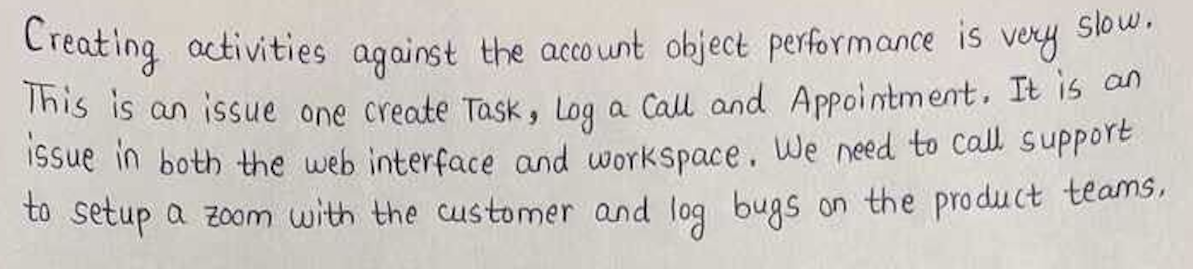 Creating activities against the account object performance is very slow.
This is an issue one create Task, Log a Call and Appointment. It is an
issue in both the web interface and workspace. We need to call support
to setup a zoom with the customer and log bugs on the product teams.